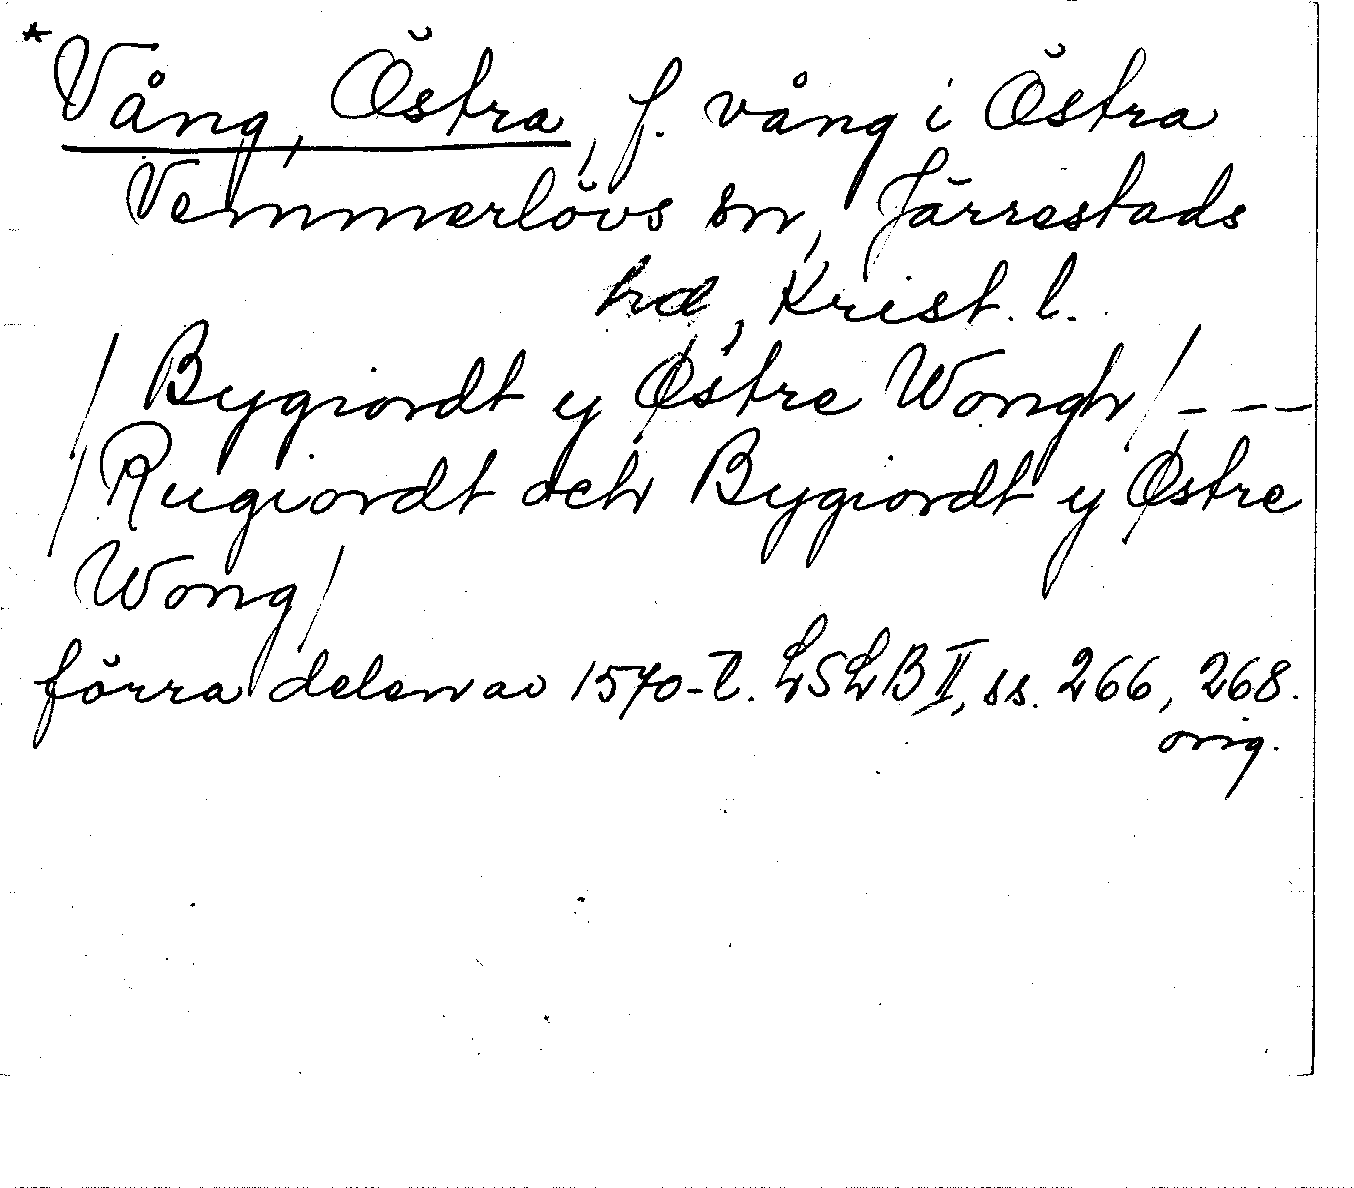 *Vång, Östra, f. vång i Östra
Vemmerlövs sn, Järrestads
hd, Krist. l.
/Bygiordt y Østre Wongh/ ---
/Rugiordt och Bygiordt y Østre
Wong/
förra delen av 1570-t. LSLB II, ss. 266, 268.
orig.